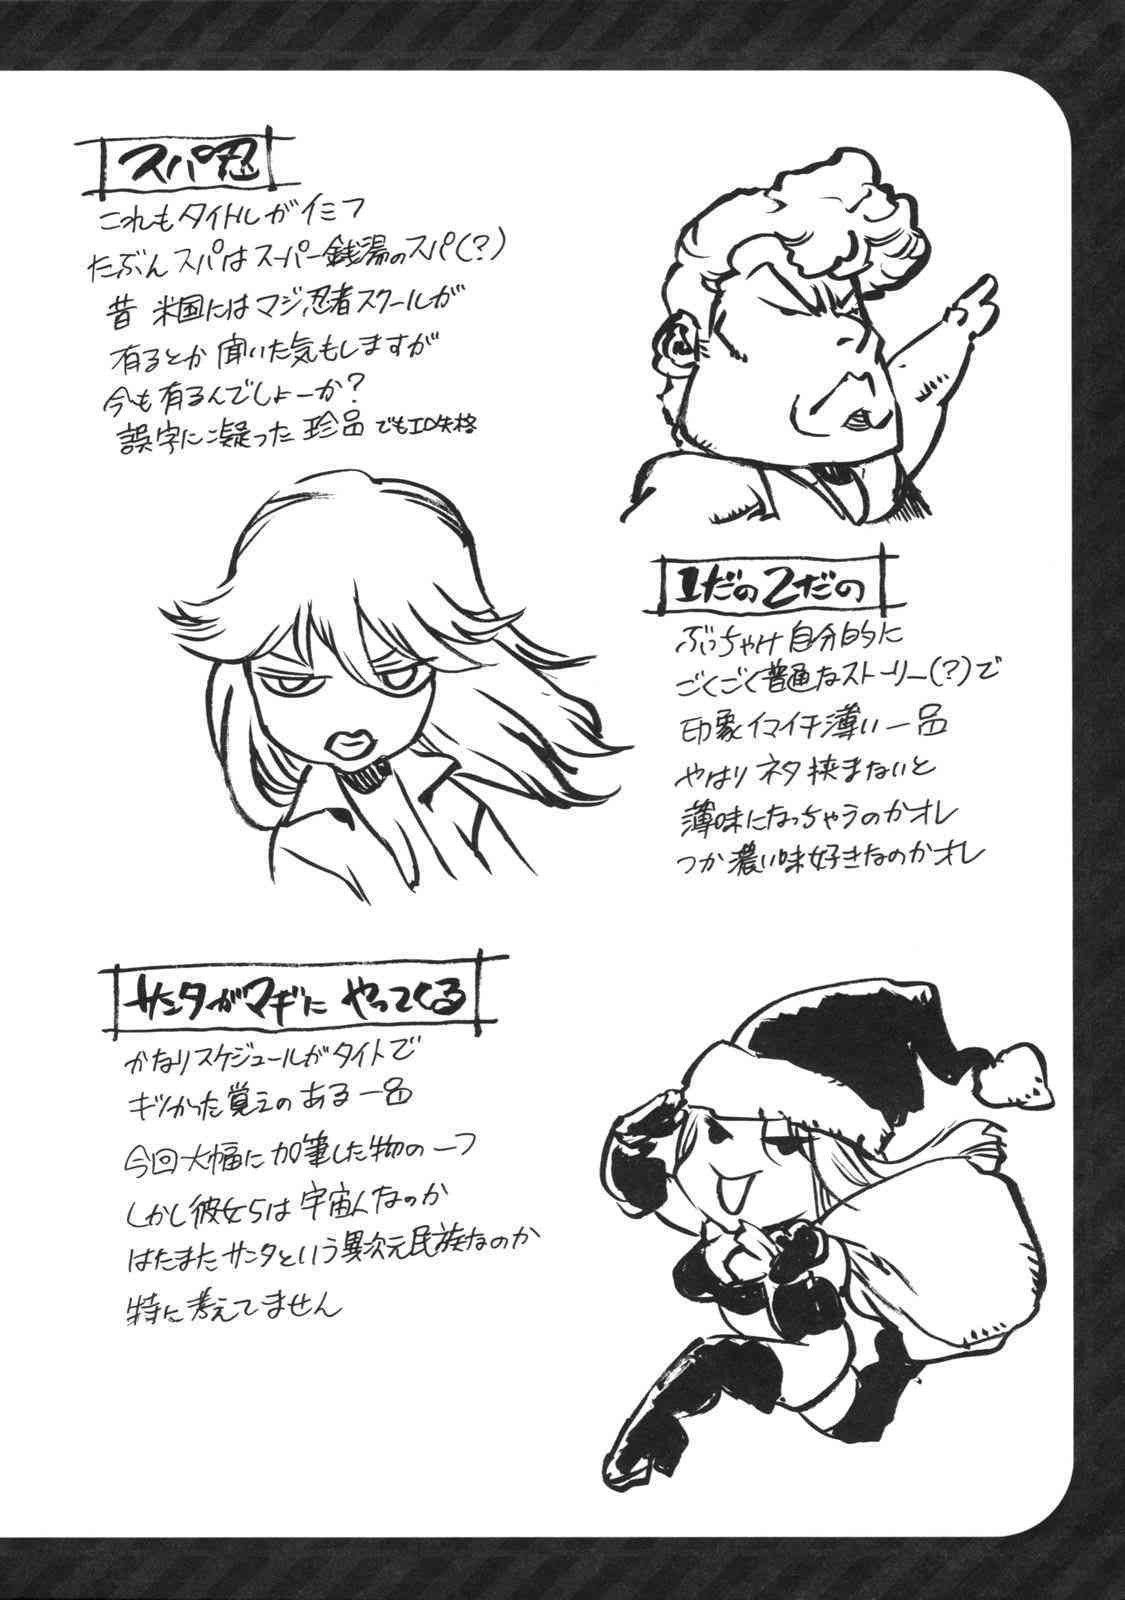 スパ忍
これもタイトルがイミフ
たぶん スパは スーパー銭湯のスパ(?)
昔 米国には マジ忍者スクールが
有るとか 聞いた気もしますが
今も有るんでしょーか?
誤字に疑った 珍品 でもエロ失格
1だの2だの
ぶっちゃけ自分的に
ごくごく普通なストーリー(?)で
印象イマイチ薄い一品
やはり ネタ挟まないと
薄味になっちゃうのかオレ
つか濃い味好きなのかオレ
サンタがマギに やってくる
かなりスケジュールがタイトで
キツかった覚えのある一品
今回大幅に加筆した物の一つ
しかし彼女らは 宇宙人なのか
はたまたサンタという異次元民族なのか
特に考えてません